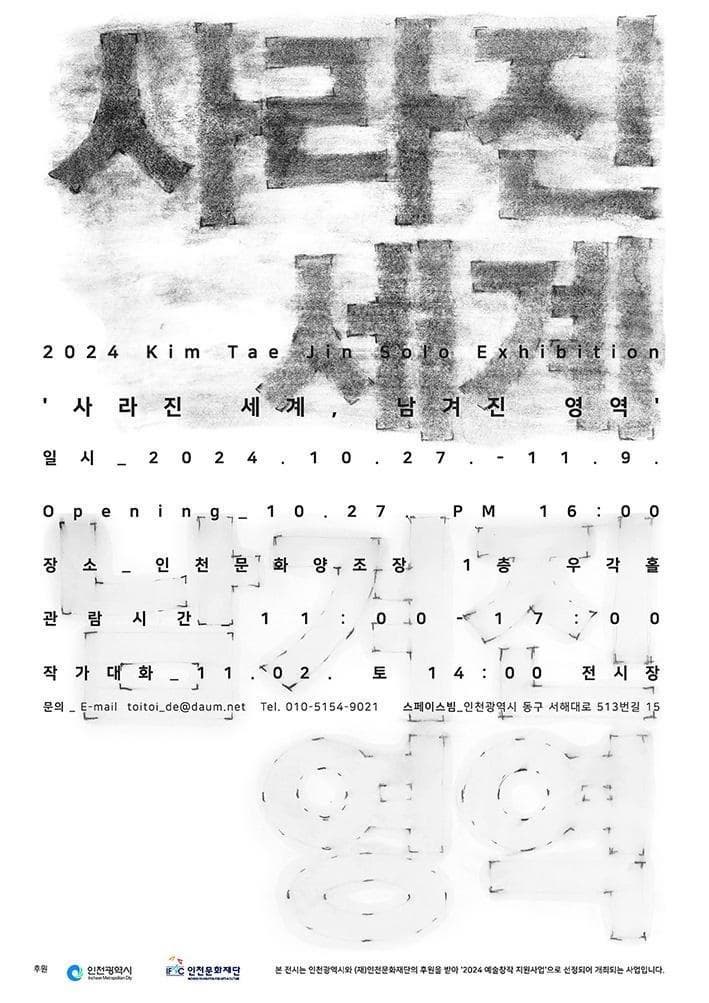 사라진
세계
2024 Kim Tae Jin Solo Exhibition
'사라진 세계, 남겨진 영역'
일시_2024.10.27.-11.9.
Opening_10.27. PM 16:00
장소_인천문화양조장 1층 우각홀
관람시간_11:00-17:00
작가대화_11.02. 토 14:00 전시장
문의 _ E-mail toitoi_de@daum.net Tel. 010-5154-9021 스페이스빔_인천광역시 동구 서해대로 513번길 15
남겨진
영역
후원 인천광역시 Incheon Metropolitan City IFAC 인천문화재단 본 전시는 인천광역시와 (재)인천문화재단의 후원을 받아 '2024 예술창작 지원사업'으로 선정되어 개최되는 사업입니다.